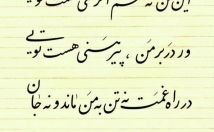 این من نه منم اگر منی هست تویی
ور در بر من ، پیرهنی هست تویی
در راه غمت نه تن به من ماند و نه جان